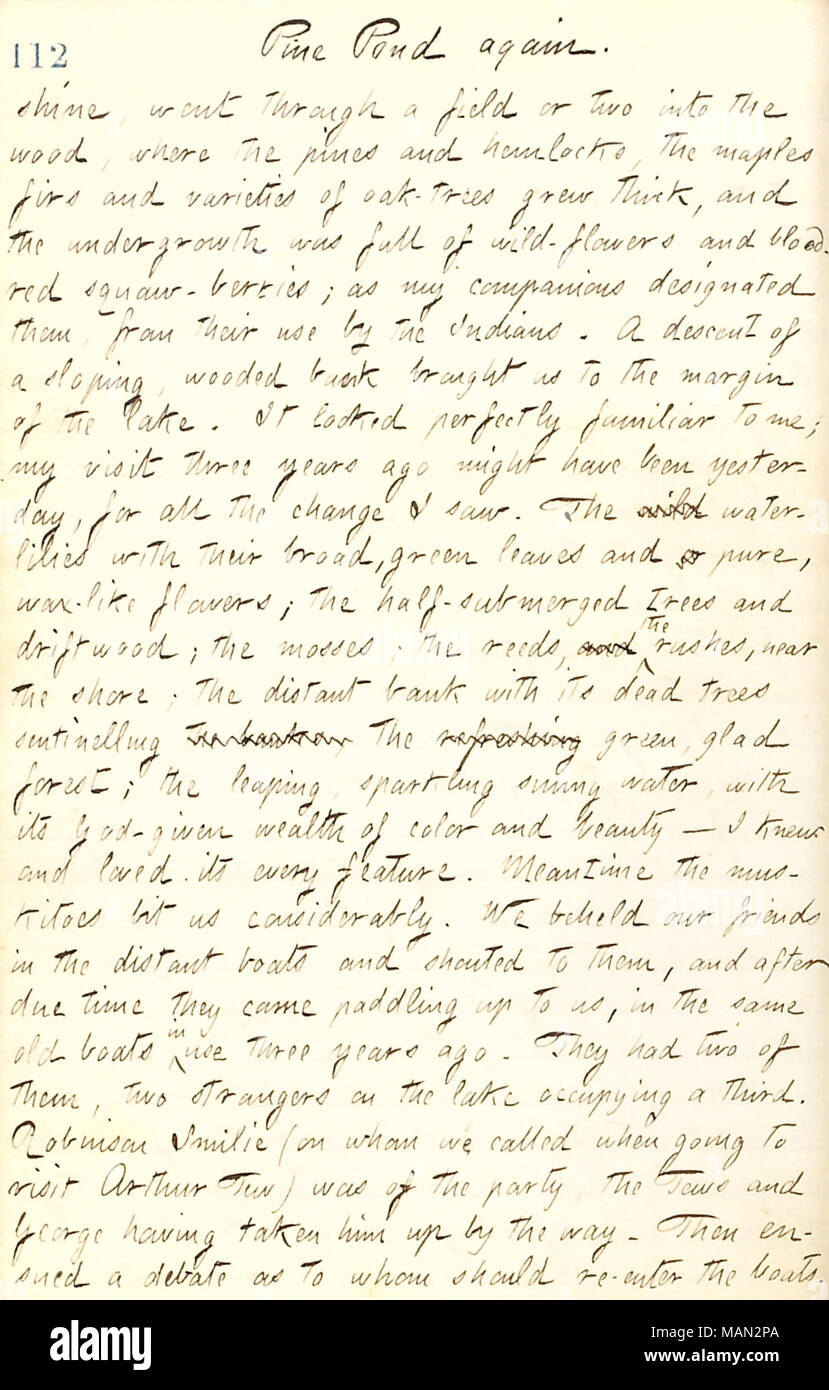 112
Pine Pond again.
shine, went through a field or two into the
wood, where the pines and hemlocks, the maples
firs and varieties of oak-trees grew thick, and
the undergrowth was full of wild-flowers and blood-
red squaw-berries; as my companions designated
them, from their use by the Indians. A descent of
a sloping, wooded bank brought us to the margin
of the lake. It looked perfectly familiar to me;
my visit three years ago might have been yester-
day, for all the change I saw. The wild water-
lilies with their broad, green leaves and pure,
wax-like flowers; the half-submerged trees and
driftwood; the mosses; the reeds, and the rushes, near
the shore; the distant bank with its dead trees
sentinelling the the refreshing green, glad
forest; the leaping, sparkling sunny water, with
its God-given wealth of color and beauty — I knew
and loved its every feature. Meantime the mus-
kitoes bit us considerably. We beheld our friends
in the distant boats and shouted to them, and after
due time they came paddling up to us, in the same
old boats in use three years ago. They had two of
them, two strangers on the lake occupying a third.
Robinson Smilie (on whom we called when going to
visit Arthur Tew) was of the party, the Tews and
George having taken him up by the way. Then en-
sued a debate as to whom should re-enter the boats.
alamy
Image ID: MAN2PA
www.alamy.com